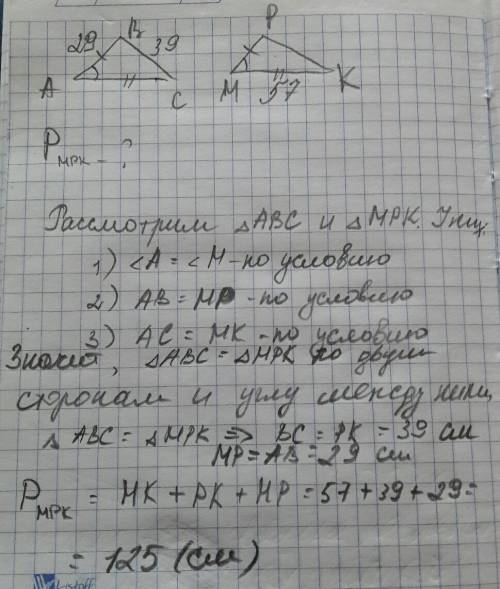 29 B 39
A C
P
M 57 K
P_MPK - ?
Рассмотрим △ABC и △MPK. У них
1) ∠A = ∠M - по условию
2) AB = MP - по условию
3) AC = MK - по условию
Значит, △ABC = △MPK по двум
сторонам и углу между ними
△ABC = △MPK ⇒ BC = PK = 39 см
MP = AB = 29 см
P_MPK = MK + PK + MP = 57 + 39 + 29 =
= 125 (см)